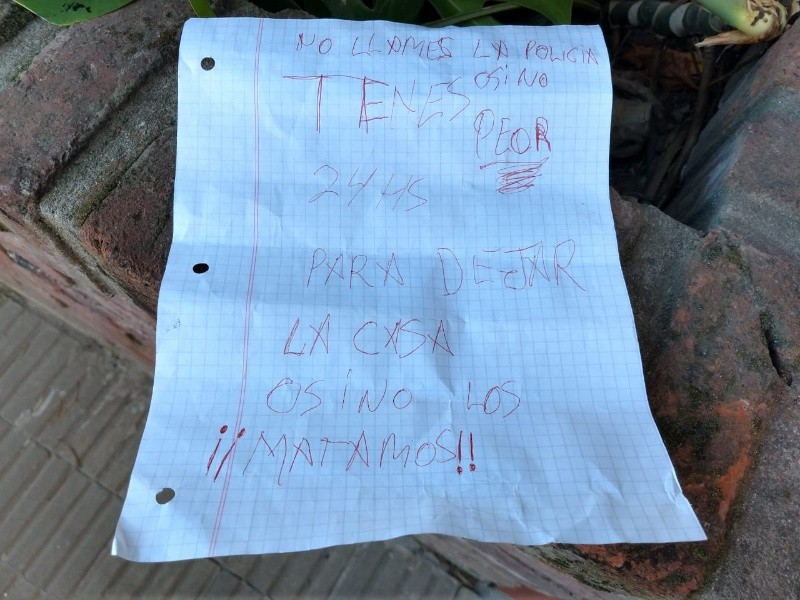 NO LLAMES LA POLICIA
OSINO
TENES PEOR
24 HS
PARA DEJAR
LA CASA
OSINO LOS
¡¡MATAMOS!!